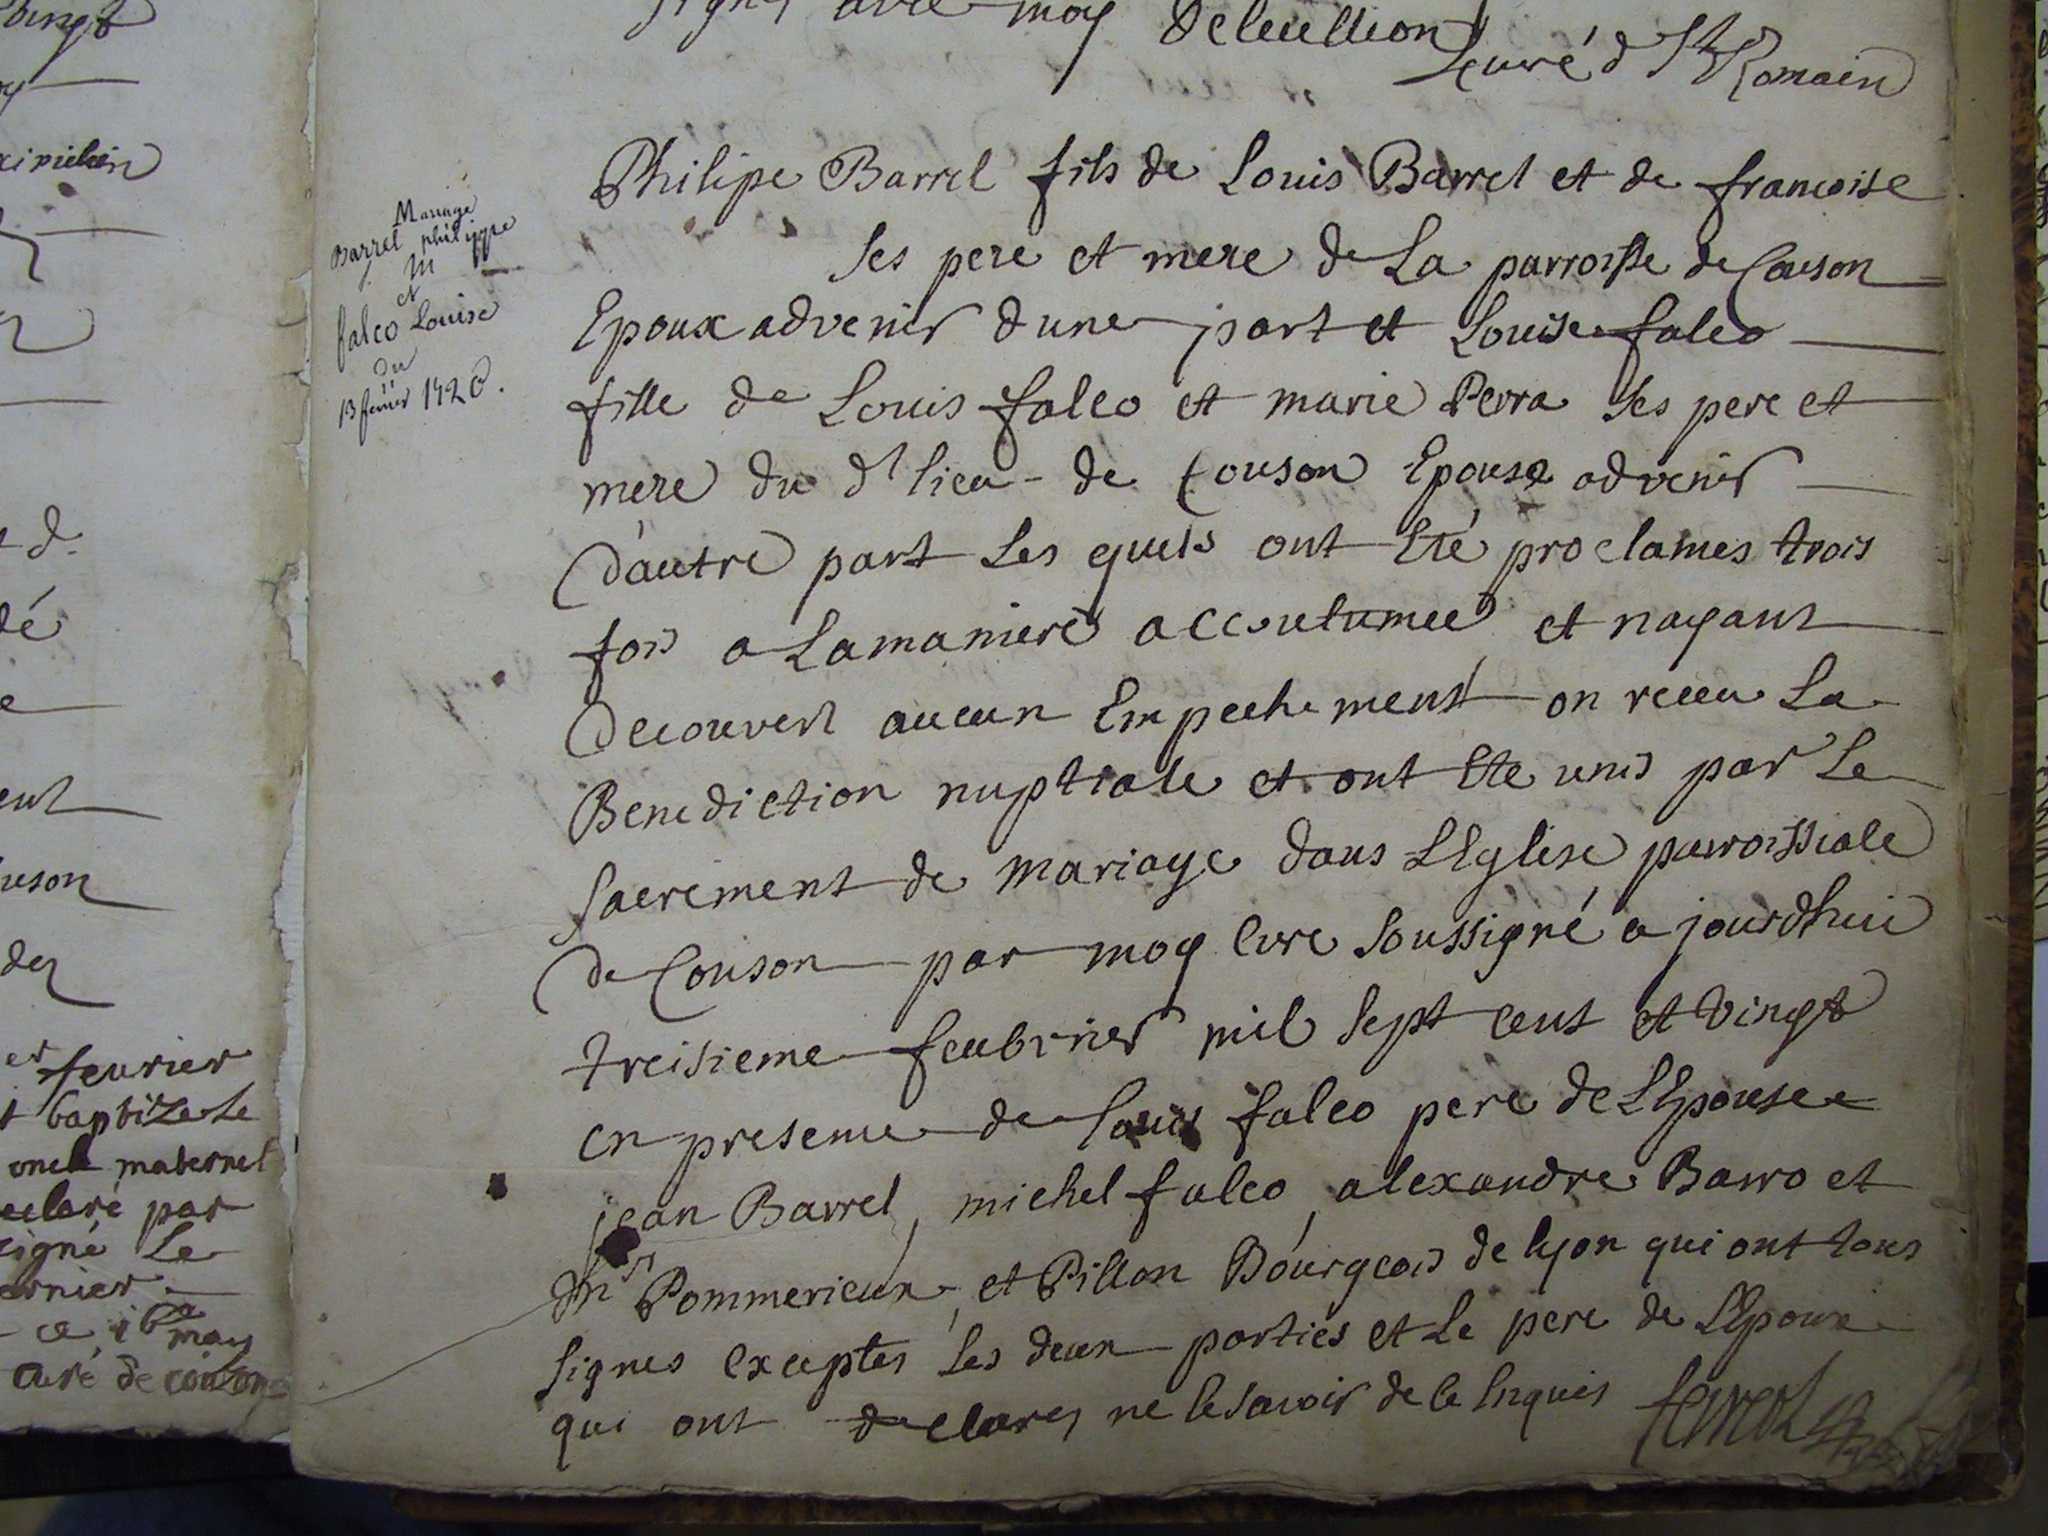 vingt
signes avec moy Deleullion
Curé d St Romain
Mariage
Barrel philippe
et
falco Louise
du
13 fevrier 1720.
Philipe Barrel fils de Louis Barrel et de francoise
ses pere et mere de La parroisse de Couson
Epoux advenir dune part et Louise falco
fille de Louis falco et marie Perra ses pere et
mere du dt lieu de Couson Epouse advenir
d'autre part Les quels ont Eté proclames trois
fois a La maniere accoutumee et nayant
decouvert aucun Empechement on receu La
Benediction nuptiale et ont Ete unis par Le
sacrement de mariage dans LEglise parroissiale
de Couson par moy Cure soussigné a jourdhui
treisieme feubvrier mil sept cent et vingt
en presence de Louis falco pere de LEpousee
jean Barrel, michel falco, alexandre Barro et
Mrs Pommerieux, et Pillon Bourgeois de lyon qui ont tous
signes exceptes Les deux parties et Le pere de LEpoux
qui ont declares ne le savoir de ce Enquis
uson
de
er feurier
t baptize le
oncle maternel
eclaré par
signé Le
ernier
may
curé de couzon